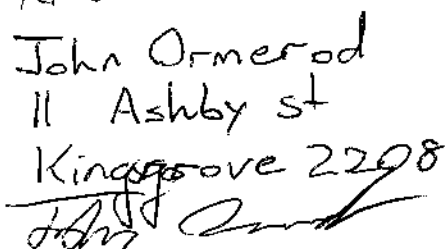 John Ormerod
11 Ashby st
Kingsgrove 2208